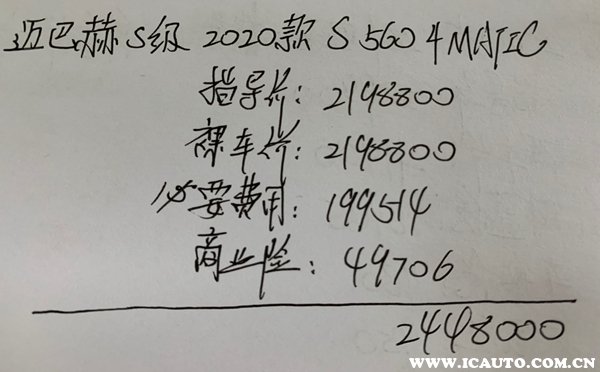 迈巴赫S级 2020款 S 560 4MATIC
指导价：2198800
裸车价：2198800
必要费用：199514
商业险：49706
2448000
WWW.ICAUTO.COM.CN